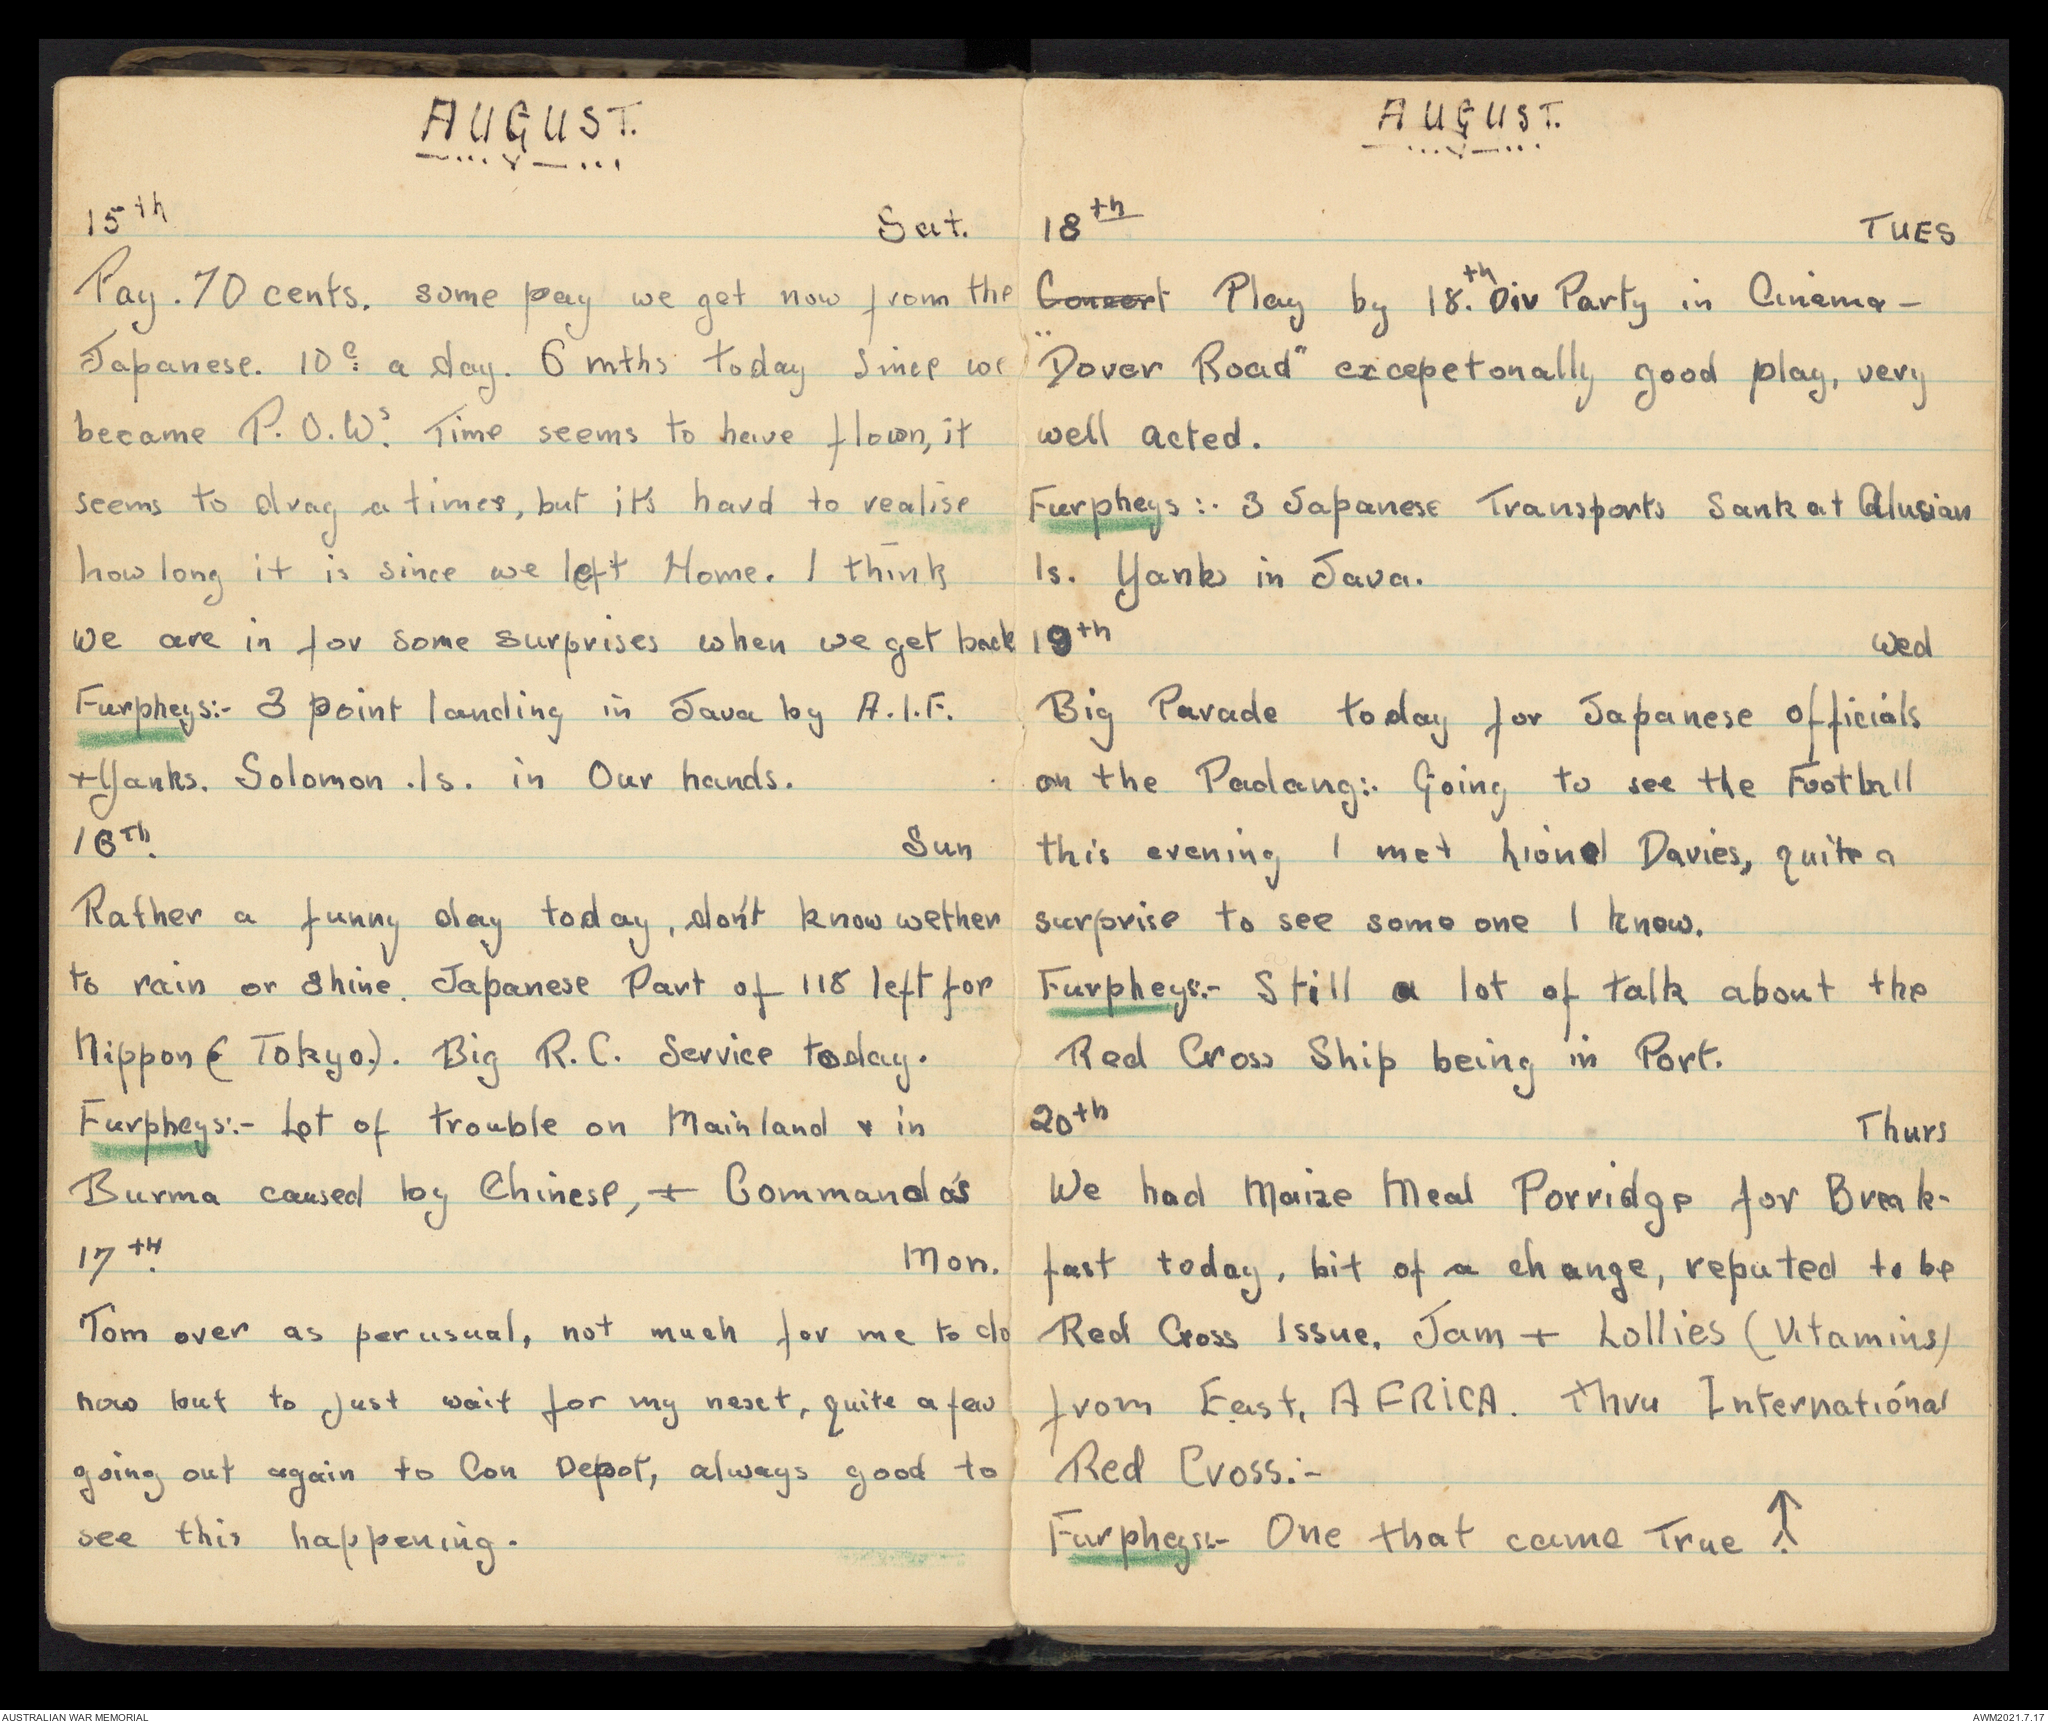 AUGUST.
15th Sat.
Pay. 70 cents. some pay we get now from the
Japanese. 10c a day. 6 mths today since we
became P.O.W.s Time seems to have flown, it
seems to drag a times, but it's hard to realise
how long it is since we left Home. I think
we are in for some surprises when we get back
Furpheys:- 3 point landing in Java by A.I.F.
+ Yanks. Solomon .Is. in Our hands.
16Th. Sun
Rather a funny day today, don't know wether
to rain or shine. Japanese Part of 118 left for
Nippon (Tokyo.). Big R.C. Service today.
Furpheys:- Lot of trouble on Mainland & in
Burma caused by Chinese, + Commando's
17TH. Mon.
Tom over as per usual, not much for me to do
now but to just wait for my next, quite a few
going out again to Con Depot, always good to
see this happening.
AUGUST.
18th TUES
Concert Play by 18.th Div Party in Cinema -
"Dover Road" excepetonally good play, very
well acted.
Furpheys:- 3 Japanese Transports Sank at Alusian
Is. Yanks in Java.
19th Wed
Big Parade today for Japanese officials
on the Padang:. Going to see the Football
this evening I met Lionel Davies, quite a
surprise to see some one I know.
Furpheys:- Still a lot of talk about the
Red Cross Ship being in Port.
20th Thurs
We had Maize Meal Porridge for Break-
fast today, bit of a change, reputed to be
Red Cross Issue. Jam + Lollies (Vitamins)
from East. AFRICA. Thru International
Red Cross:-
Furpheys:- One that came True ↑
AUSTRALIAN WAR MEMORIAL AWM2021.7.17